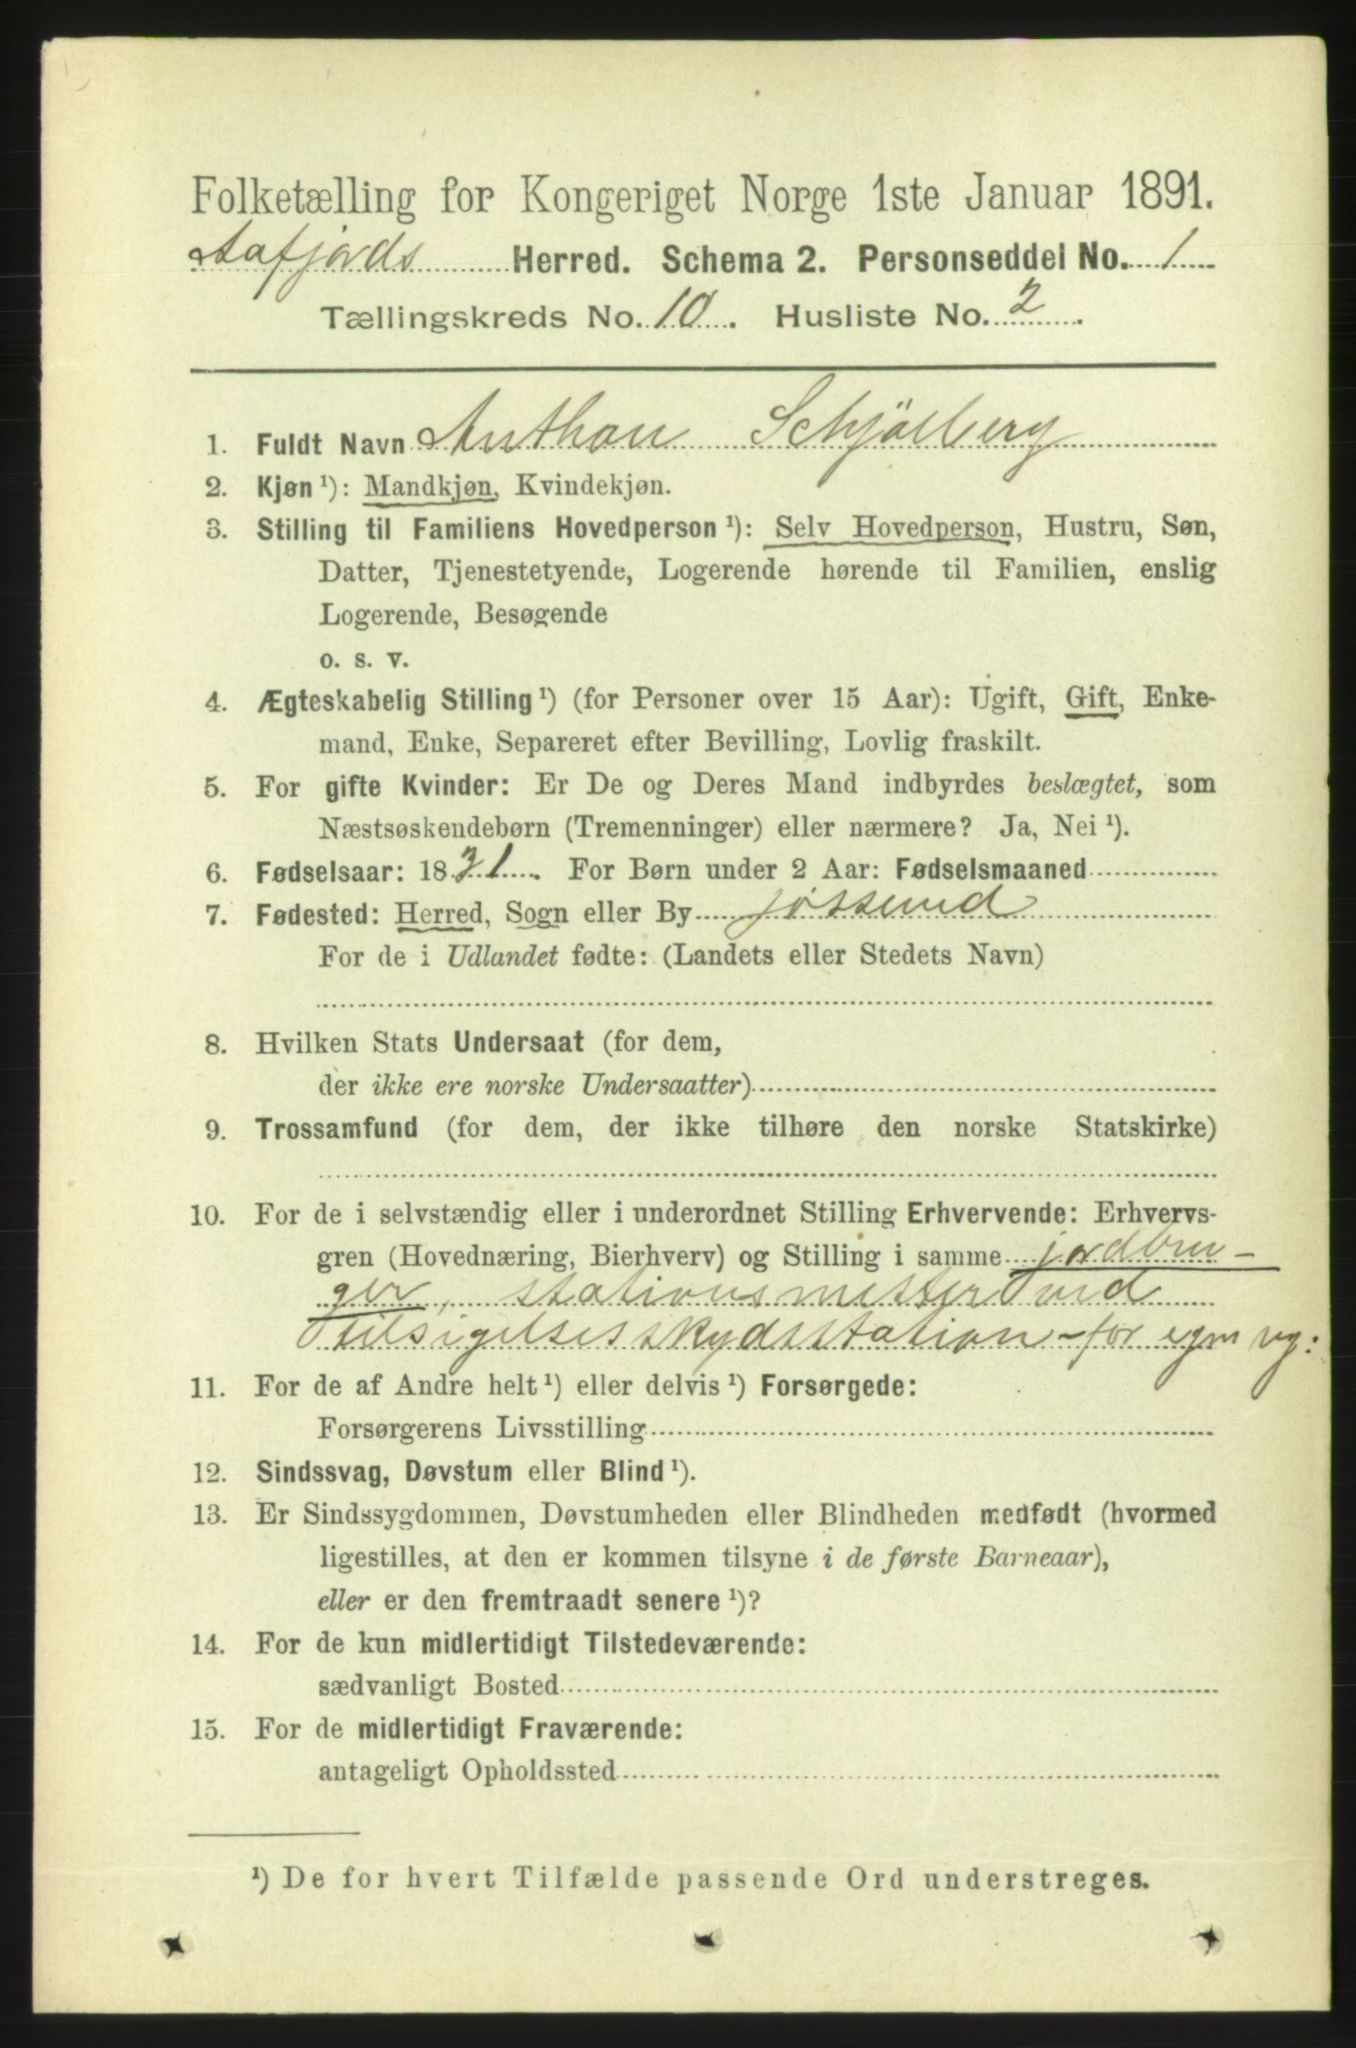 Folketælling for Kongeriget Norge 1ste Januar 1891.
Aafjords Herred. Schema 2. Personseddel No. 1
Tællingskreds No. 10. Husliste No. 2
1. Fuldt Navn Anthon Schjölberg
2. Kjøn ¹): Mandkjøn, Kvindekjøn.
3. Stilling til Familiens Hovedperson ¹): Selv Hovedperson, Hustru, Søn,
Datter, Tjenestetyende, Logerende hørende til Familien, enslig
Logerende, Besøgende
o. s. v.
4. Ægteskabelig Stilling ¹) (for Personer over 15 Aar): Ugift, Gift, Enke-
mand, Enke, Separeret efter Bevilling, Lovlig fraskilt.
5. For gifte Kvinder: Er De og Deres Mand indbyrdes beslægtet, som
Næstsøskendebørn (Tremenninger) eller nærmere? Ja, Nei ¹).
6. Fødselsaar: 1831. For Børn under 2 Aar: Fødselsmaaned
7. Fødested: Herred, Sogn eller By jössund
For de i Udlandet fødte: (Landets eller Stedets Navn)
8. Hvilken Stats Undersaat (for dem,
der ikke ere norske Undersaatter)
9. Trossamfund (for dem, der ikke tilhøre den norske Statskirke)
10. For de i selvstændig eller i underordnet Stilling Erhvervende: Erhvervs-
gren (Hovednæring, Bierhverv) og Stilling i samme jordbru-
ger, stationsmester ved
tilsigelsesskydsstation - for egen rg:
11. For de af Andre helt ¹) eller delvis ¹) Forsørgede:
Forsørgerens Livsstilling
12. Sindssvag, Døvstum eller Blind ¹).
13. Er Sindssygdommen, Døvstumheden eller Blindheden medfødt (hvormed
ligestilles, at den er kommen tilsyne i de første Barneaar),
eller er den fremtraadt senere ¹)?
14. For de kun midlertidigt Tilstedeværende:
sædvanligt Bosted
15. For de midlertidigt Fraværende:
antageligt Opholdssted
¹) De for hvert Tilfælde passende Ord understreges.